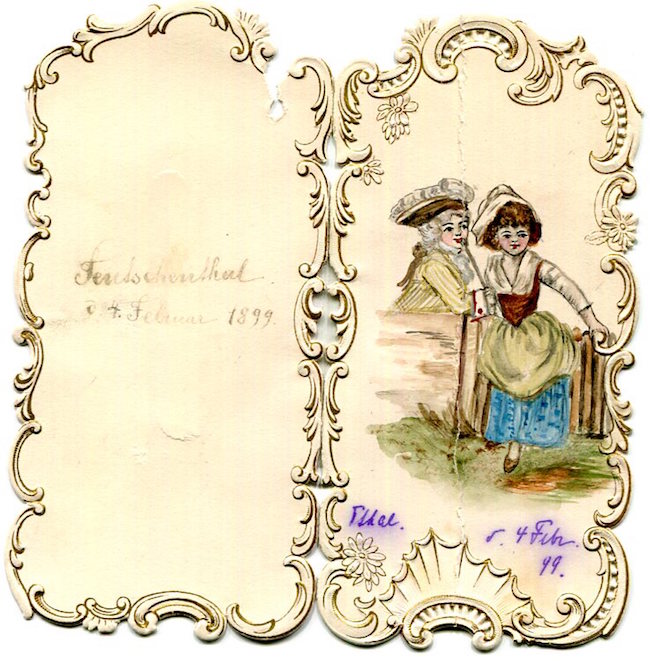 Teutschenthal.
d. 4. Februar 1899.
Tthal.
d. 4 Febr.
99.